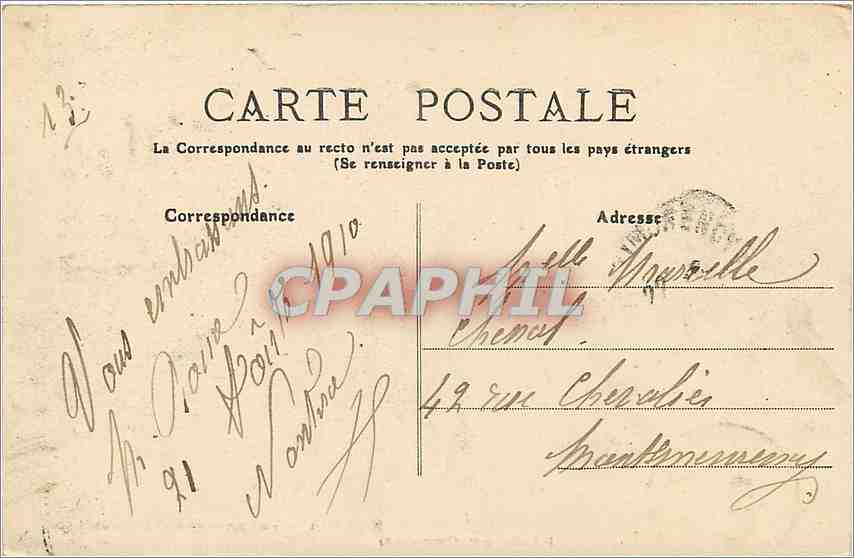 13
CARTE POSTALE
La Correspondance au recto n'est pas acceptée par tous les pays étrangers
(Se renseigner à la Poste)
Correspondance
Vous embrassons.
21 Août 1910
Adresse
Melle Marcelle
Chenal
42 rue Chevalier
Montmorency
MONTMORENCY
CPAPHIL